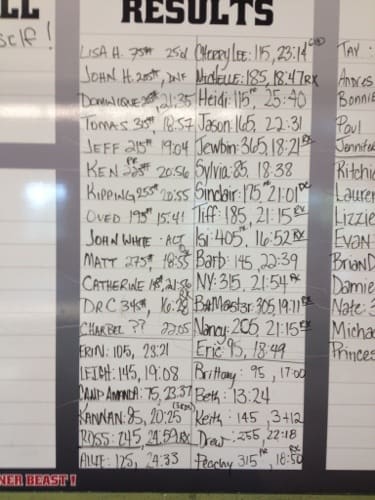 LL
RESULTS
self!
LISA H. 75# 25:1
JOHN H. 205#, DNF
DOMINIQUE 21:35
TOMAS 315# 18:57
JEFF 215# 19:04
KEN 225# 20:56
KIPPING 255# 20:55
OVED 195# 15:41
JOHN WHITE - ACT
MATT 275# 18:55
CATHERINE 21:56
DRC 345# 16:28
CHARBEL ?? 22:05
ERIN: 105, 23:21
LEIGH: 145, 19:08
CAND AMANDA: 75, 23:37
KANNAN: 85, 20:25
ROSS: 245, 24:59 RX
ALLIE: 125, 24:33
CHERRY LEE: 115, 23:14
MICHELLE: 185, 18:47 RX
Heidi: 115, 25:40
Jason: 165, 22:31
Jewbin: 365, 18:21 RX
Sylvia: 85, 18:38
Sinclair: 175, 21:01
Tiff: 185, 21:15 RX
Isi: 405, 16:52 RX
Barb: 145, 22:39
NY: 315, 21:54 RX
305, 19:11 RX
Nancy: 205, 21:15 RX
Eric: 95, 18:49
Brittany: 95, 17:00
Beth: 13:24
Keith: 145, 3+12
Drew: 255, 22:18
Peachy 315# 18:50 RX
TAV:
Andres
Bonnie
Paul
Jennifer
Ritchie
Lauren
Lizzie
Evan
Brian D
Damie
Nate: 3
Micha
Princes
NER BEAST!